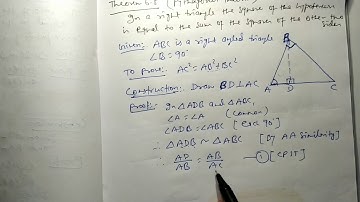 Theorem 6.8 (Pythagoras Theorem)
In a right triangle the square of the hypotenuse
is equal to the sum of the squares of the other two
sides
Given: ABC is a right angled triangle
∠B = 90°
To Prove: AC² = AB² + BC²
Construction: Draw BD⊥AC
Proof: In △ADB and △ABC,
∠A = ∠A (Common)
∠ADB = ∠ABC [Each 90°]
∴ △ADB ~ △ABC [By AA Similarity]
∴ AD/AB = AB/AC —① [CPST]
B
A D C